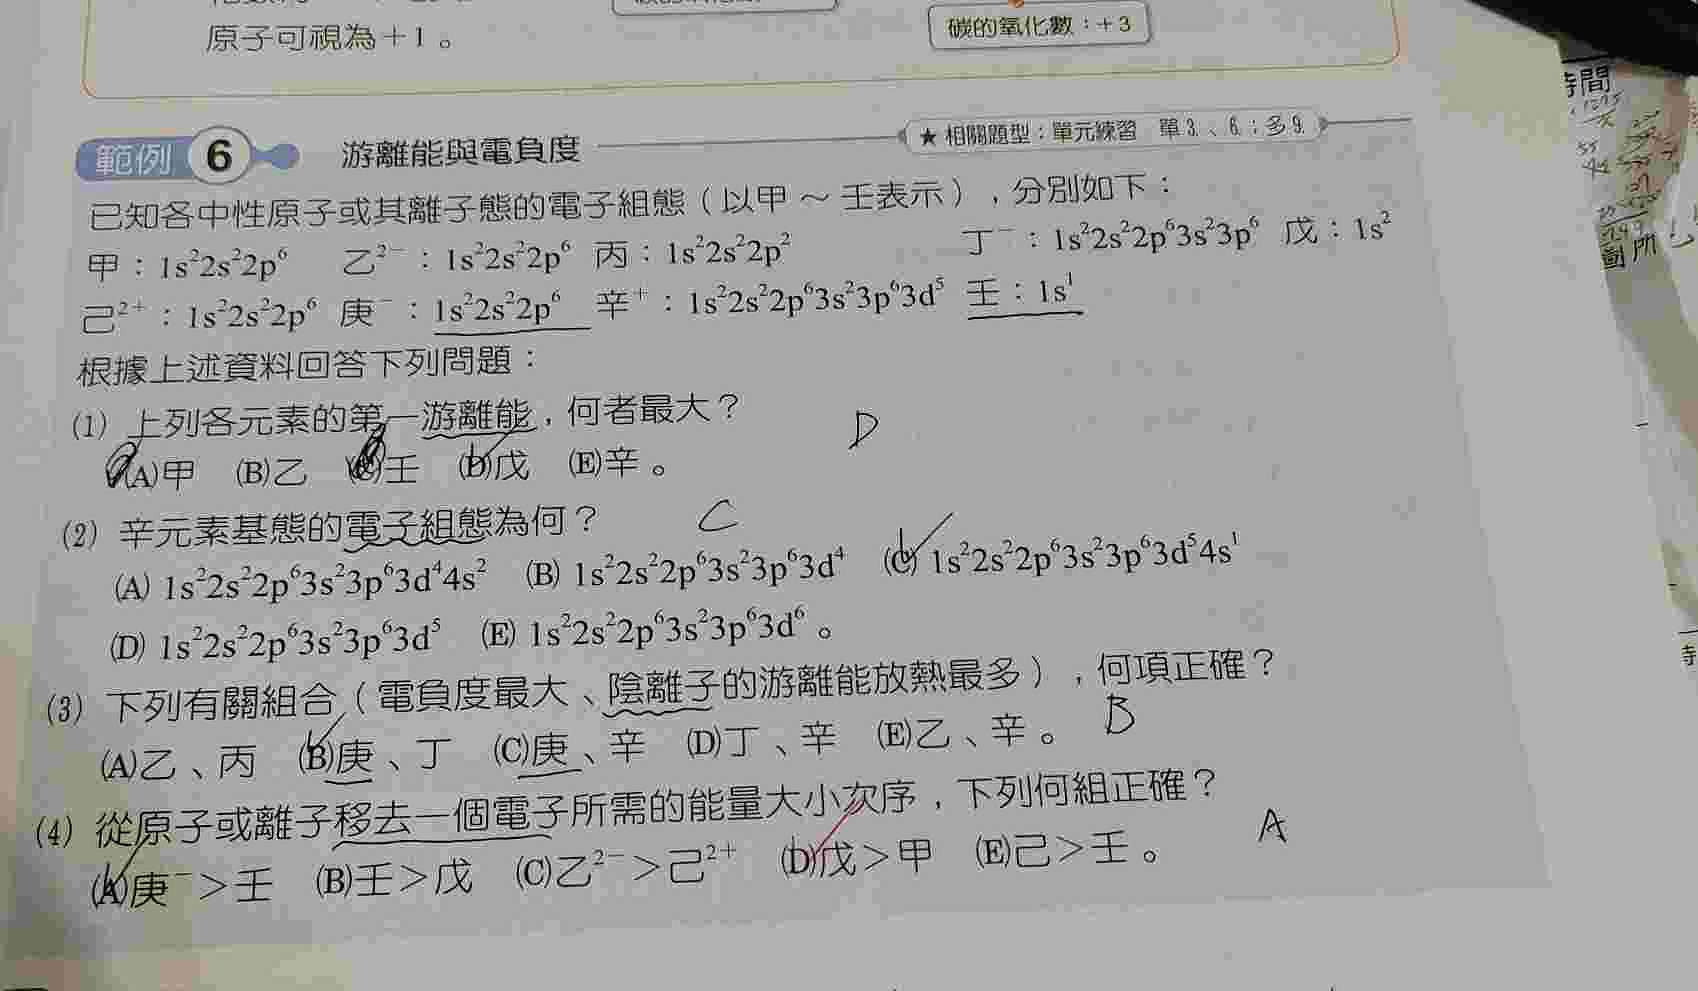 原子可視為＋1。
碳的氧化數：＋3
範例 6 游離能與電負度
★ 相關題型：單元練習 單3.、6.；多9.
已知各中性原子或其離子態的電子組態（以甲～壬表示），分別如下：
甲：1s²2s²2p⁶ 乙²⁻：1s²2s²2p⁶ 丙：1s²2s²2p² 丁⁻：1s²2s²2p⁶3s²3p⁶ 戊：1s²
己²⁺：1s²2s²2p⁶ 庚⁻：1s²2s²2p⁶ 辛⁺：1s²2s²2p⁶3s²3p⁶3d⁵ 壬：1s¹
根據上述資料回答下列問題：
(1) 上列各元素的第一游離能，何者最大？ D
(A)甲 (B)乙 (C)壬 (D)戊 (E)辛。
(2) 辛元素基態的電子組態為何？ C
(A) 1s²2s²2p⁶3s²3p⁶3d⁴4s² (B) 1s²2s²2p⁶3s²3p⁶3d⁴ (C) 1s²2s²2p⁶3s²3p⁶3d⁵4s¹
(D) 1s²2s²2p⁶3s²3p⁶3d⁵ (E) 1s²2s²2p⁶3s²3p⁶3d⁶。
(3) 下列有關組合（電負度最大、陰離子的游離能放熱最多），何項正確？
(A)乙、丙 (B)庚、丁 (C)庚、辛 (D)丁、辛 (E)乙、辛。 B
(4) 從原子或離子移去一個電子所需的能量大小次序，下列何組正確？
(A)庚⁻＞壬 (B)壬＞戊 (C)乙²⁻＞己²⁺ (D)戊＞甲 (E)己＞壬。 A
時間